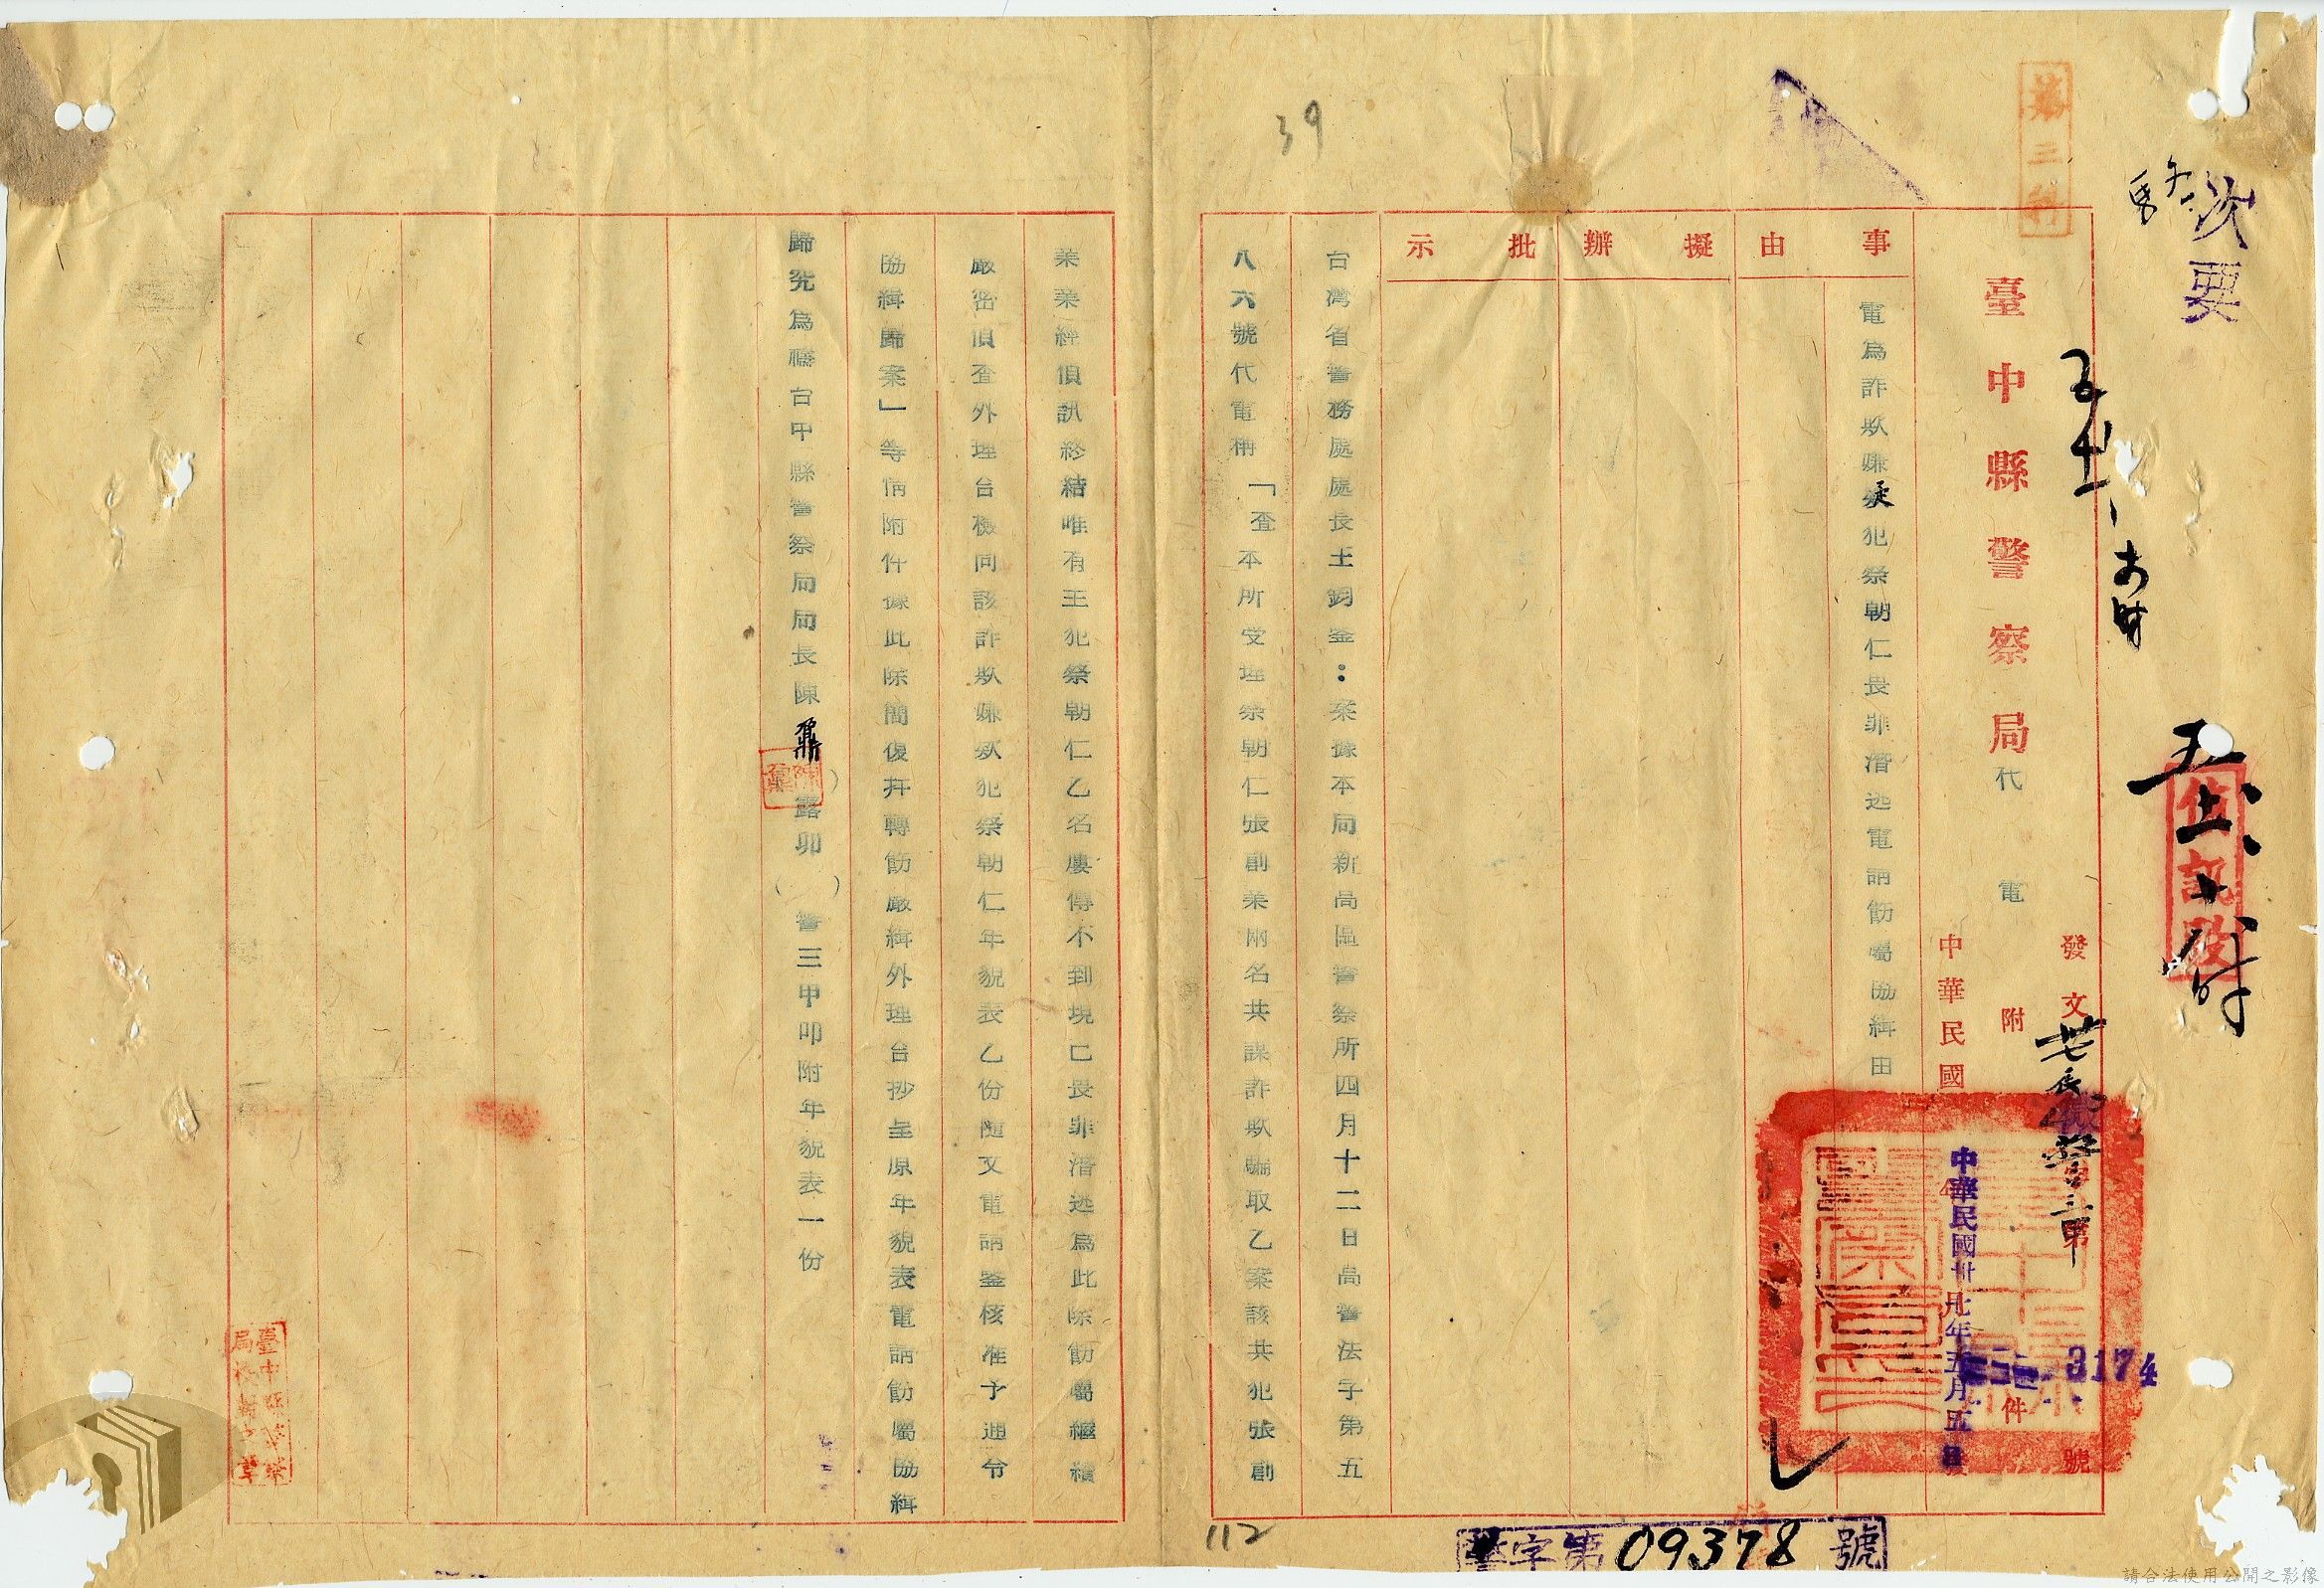 第三科
次要
39
臺中縣警察局代電
發文
警三第
3174
號
附
件
中華民國
中華民國卅七年五月五日
事由
擬辦
批示
電為詐欺嫌疑犯蔡朝仁畏罪潛逃電請飭屬協緝由
台灣省警務處處長王鈞鑒：案據本局新高區警察所四月十二日高警法字第五
八六號代電稱「查本所受理蔡朝仁張創業兩名共謀詐欺騙取乙案該共犯張創
業業經偵訊終結唯有主犯蔡朝仁乙名屢傳不到現已畏罪潛逃為此除飭屬繼續
嚴密偵查外理合檢同該詐欺嫌疑犯蔡朝仁年貌表乙份隨文電請鑒核准予通令
協緝歸案」等情附件據此除簡復并轉飭嚴緝外理合抄呈原年貌表電請飭屬協緝
歸究為禱台中縣警察局局長陳
露卯（　）警三甲叩附年貌表一份
臺中縣警察
局
112
字第09378號
請合法使用公開之影像